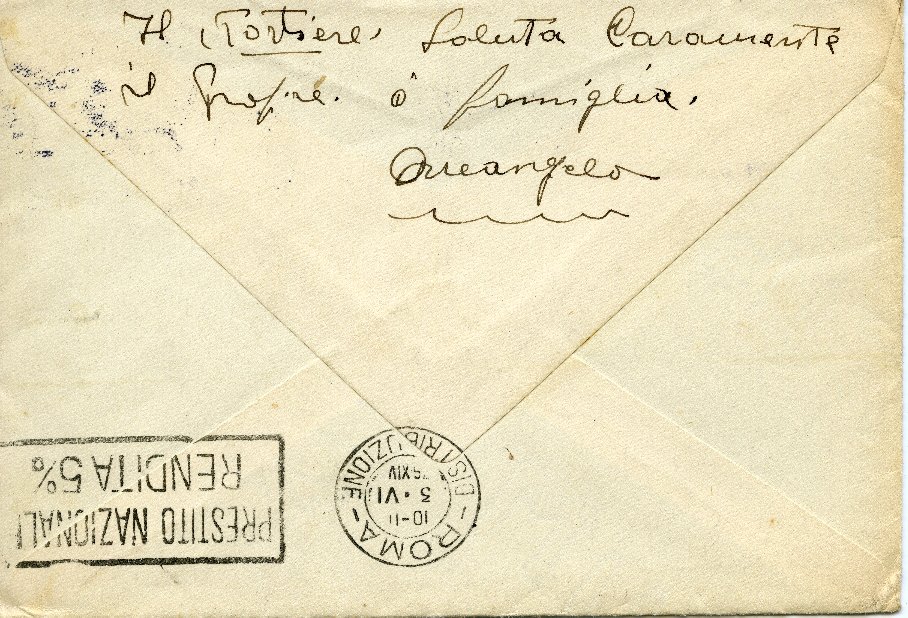 Il Portiere. Saluta Caramente
il Profre. è famiglia.
Arcangelo
PRESTITO NAZIONALE
RENDITA 5%
ROMA - DISTRIBUZIONE -
10-11
3 · VI
36 XIV